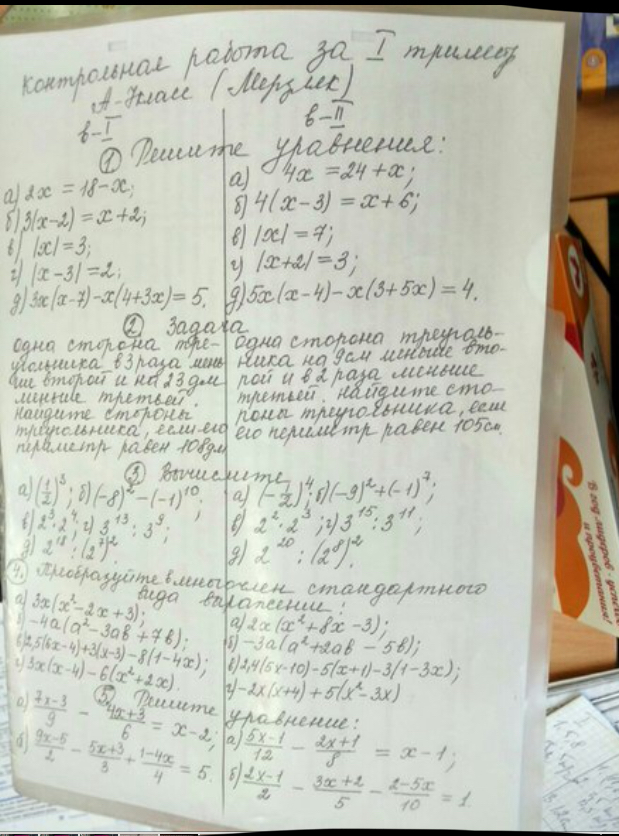 Контрольная работа за I триместр
А-7класс (Мерзляк)
в-I
в-II
① Решите уравнения:
а) 2x = 18-x;
б) 3(x-2) = x+2;
в) |x| = 3;
г) |x-3| = 2;
д) 3x(x-7)-x(4+3x) = 5.
а) 4x = 24+x;
б) 4(x-3) = x+6;
в) |x| = 7;
г) |x+2| = 3;
д) 5x(x-4)-x(3+5x) = 4.
② Задача
одна сторона тре-
угольника в 3 раза мень
ше второй и на 23дм
меньше третьей.
найдите стороны
треугольника, если его
периметр равен 108дм
одна сторона треуголь-
ника на 9см меньше вто-
рой и в 2 раза меньше
третьей. найдите сто-
роны треугольника, если
его периметр равен 105см.
③ Вычислите
а) (1/2)³; б) (-8)² - (-1)¹⁰;
в) 2³·2⁴; г) 3¹³ : 3⁹;
д) 2¹⁸ : (2⁷)².
а) (-1/2)⁴; б) (-9)² + (-1)⁷;
в) 2²·2³; г) 3¹⁵ : 3¹¹;
д) 2²⁰ : (2⁸)².
4. Преобразуйте в многочлен стандартного
вида выражение:
а) 3x(x²-2x+3);
б) -4a(a²-3ab+7b);
в) 2,5(6x-4)+3(x-3)-8(1-4x);
г) 3x(x-4)-6(x²+2x).
а) 2x(x²+8x-3);
б) -3a(a²+2ab-5b);
в) 2,4(5x-10)-5(x+1)-3(1-3x);
г) -2x(x+4)+5(x²-3x)
⑤ Решите уравнение:
а) (7x-3)/9 - (4x+3)/6 = x-2;
б) (9x-5)/2 - (5x+3)/3 + (1-4x)/4 = 5.
а) (5x-1)/12 - (2x+1)/8 = x-1;
б) (2x-1)/2 - (3x+2)/5 - (2-5x)/10 = 1